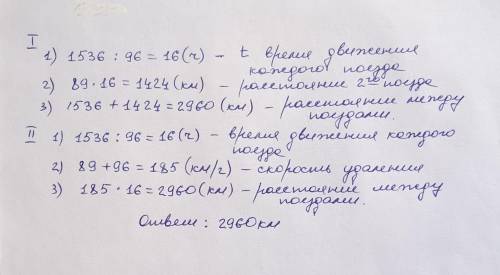 I
1) 1536 : 96 = 16 (ч) – t время движения
каждого поезда
2) 89 · 16 = 1424 (км) – расстояние 2го поезда
3) 1536 + 1424 = 2960 (км) – расстояние между
поездами.
II
1) 1536 : 96 = 16 (ч) – время движения каждого
поезда
2) 89 + 96 = 185 (км/ч) – скорость удаления
3) 185 · 16 = 2960 (км) – расстояние между
поездами.
Ответ : 2960 км